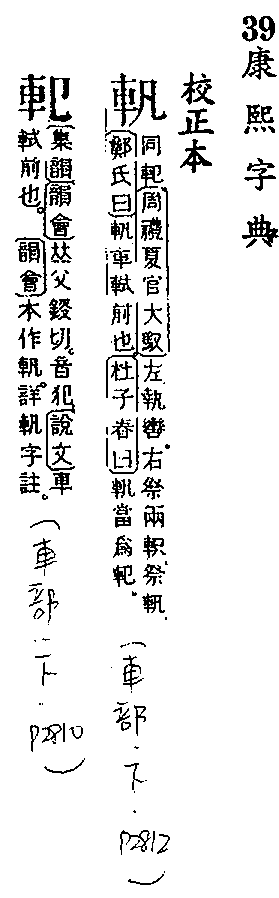 39康熙字典
校正本
軓
同軋周禮夏官大馭左執轡右祭兩軹祭軓
鄭氏曰軓車軾前也杜子春曰軓當為軋
(車部·下·P2812)
軋
集韻韻會𠀤父鍐切音犯說文車
軾前也。韻會本作軓詳軓字註。
(車部二下·P2810)